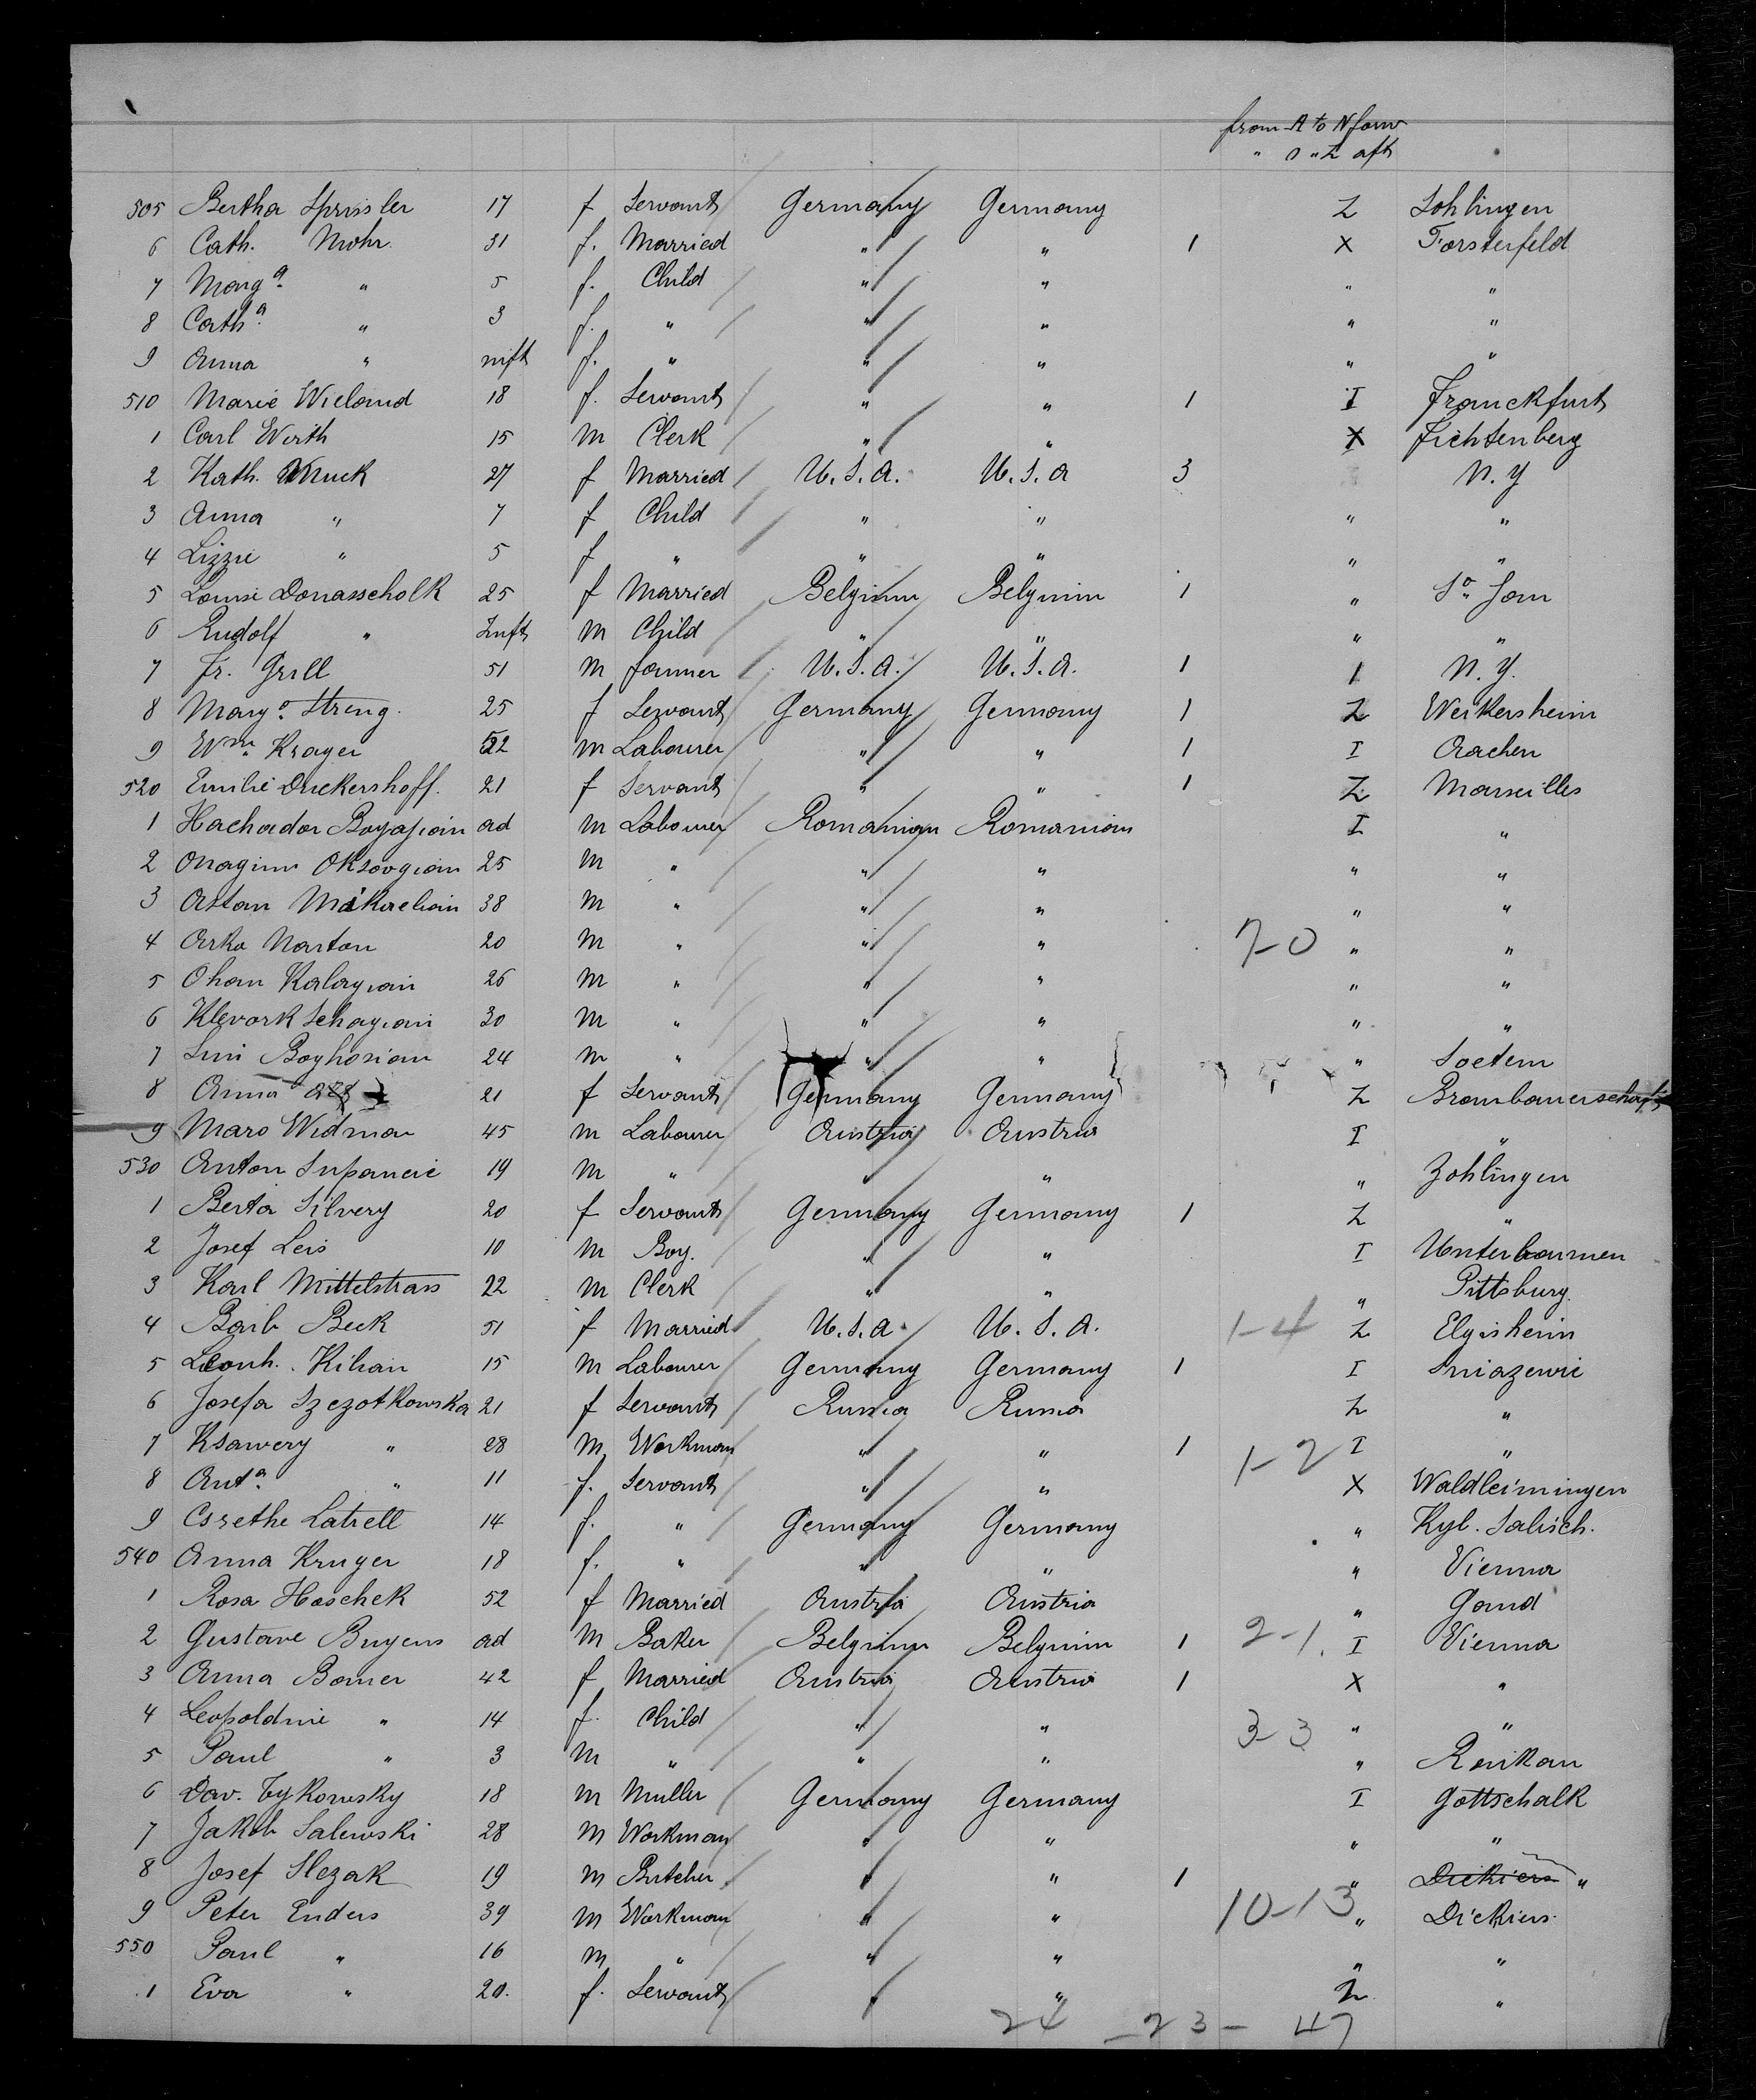 from A to N forw
" O " Z aft
505 Bertha Sprissler 17 f Servant Germany Germany Z Sohlingen
6 Cath. Mohr 31 f. Married " " 1 X Forsterfeld
7 Marga. " 5 f. Child " " " "
8 Catha. " 3 f. " " " " "
9 Anna " inft f. " " " " "
510 Marie Wieland 18 f. Servant " " 1 I Franckfurt
1 Carl Werth 15 m Clerk " " X Fichtenberg
2 Kath. Muck 27 f Married U.S.A. U.S.A 3 N.Y
3 Anna " 7 f Child " " " "
4 Lizzie " 5 f " " " " "
5 Louise Donasscholk 25 f Married Belgium Belgium 1 "
6 Rudolf " Inft m Child " " " "
7 Fr. Grill 51 m farmer U.S.A. U.S.A. 1 1 N.Y.
8 Marga. Streng. 25 f Servant Germany Germany 1 Z Weikersheim
9 Wm. Krager 22 m Labourer " " 1 I Aachen
520 Emilie Duckershoff. 21 f Servant " " 1 Z Marseilles
1 Hachador Boyajian ad m Labourer Romanian Romanian I "
2 Onagim Oksovgian 25 m " " " " "
3 Astan Mikaelian 38 m " " " " "
4 Arka Narton 20 m " " " 7-0 " "
5 Ohan Kalagian 26 m " " " " "
6 Klevork Schagian 30 m " " " " "
7 Simi Boghosian 24 m " " " " Soetern
8 Anna 21 f Servant Germany Germany Z Brombauerschaft
9 Maro Widmar 45 m Labourer Austria Austria I "
530 Anton Supancic 19 m " " " " Zohlingen
1 Berta Silvery 20 f Servant Germany Germany 1 Z "
2 Josef Leis 10 m Boy. " " I Unterbarmen
3 Karl Mittelstrass 22 m Clerk " " " Pittsburg.
4 Barb Beck 51 f Married U.S.A. U.S.A. 1-4 Z Elgisheim
5 Leonh. Kilian 15 m Labourer Germany Germany 1 I Sniazewie
6 Josefa Szczotkowska 21 f Servant Russia Russia Z "
7 Ksawery " 28 m Workman " " 1 1-2 I "
8 Anta. " 11 f. Servant " " X Waldleimingen
9 Csrethe Latrell 14 f. " Germany Germany " Kgl. Salisch.
540 Anna Kruger 18 f. " " " " Vienna
1 Rosa Haschek 52 f Married Austria Austria " Gand
2 Gustave Buyens ad m Baker Belgium Belgium 1 2-1. I Vienna
3 Anna Bomer 42 f Married Austria Austria 1 X "
4 Leopoldine " 14 f. Child " " 3-3 " "
5 Paul " 3 m " " " " Roukan
6 Dav. Tykowsky 18 m Muller Germany Germany I Gottschalk
7 Jakob Salewski 28 m Workman " " " "
8 Josef Slezak 19 m Butcher " " 1 " Dickiers "
9 Peter Enders 39 m Workman " " 10-13 " Dickiers
550 Paul " 16 m " " " " "
1 Eva " 20. f. Servant " " Z "
24 - 23 - 47